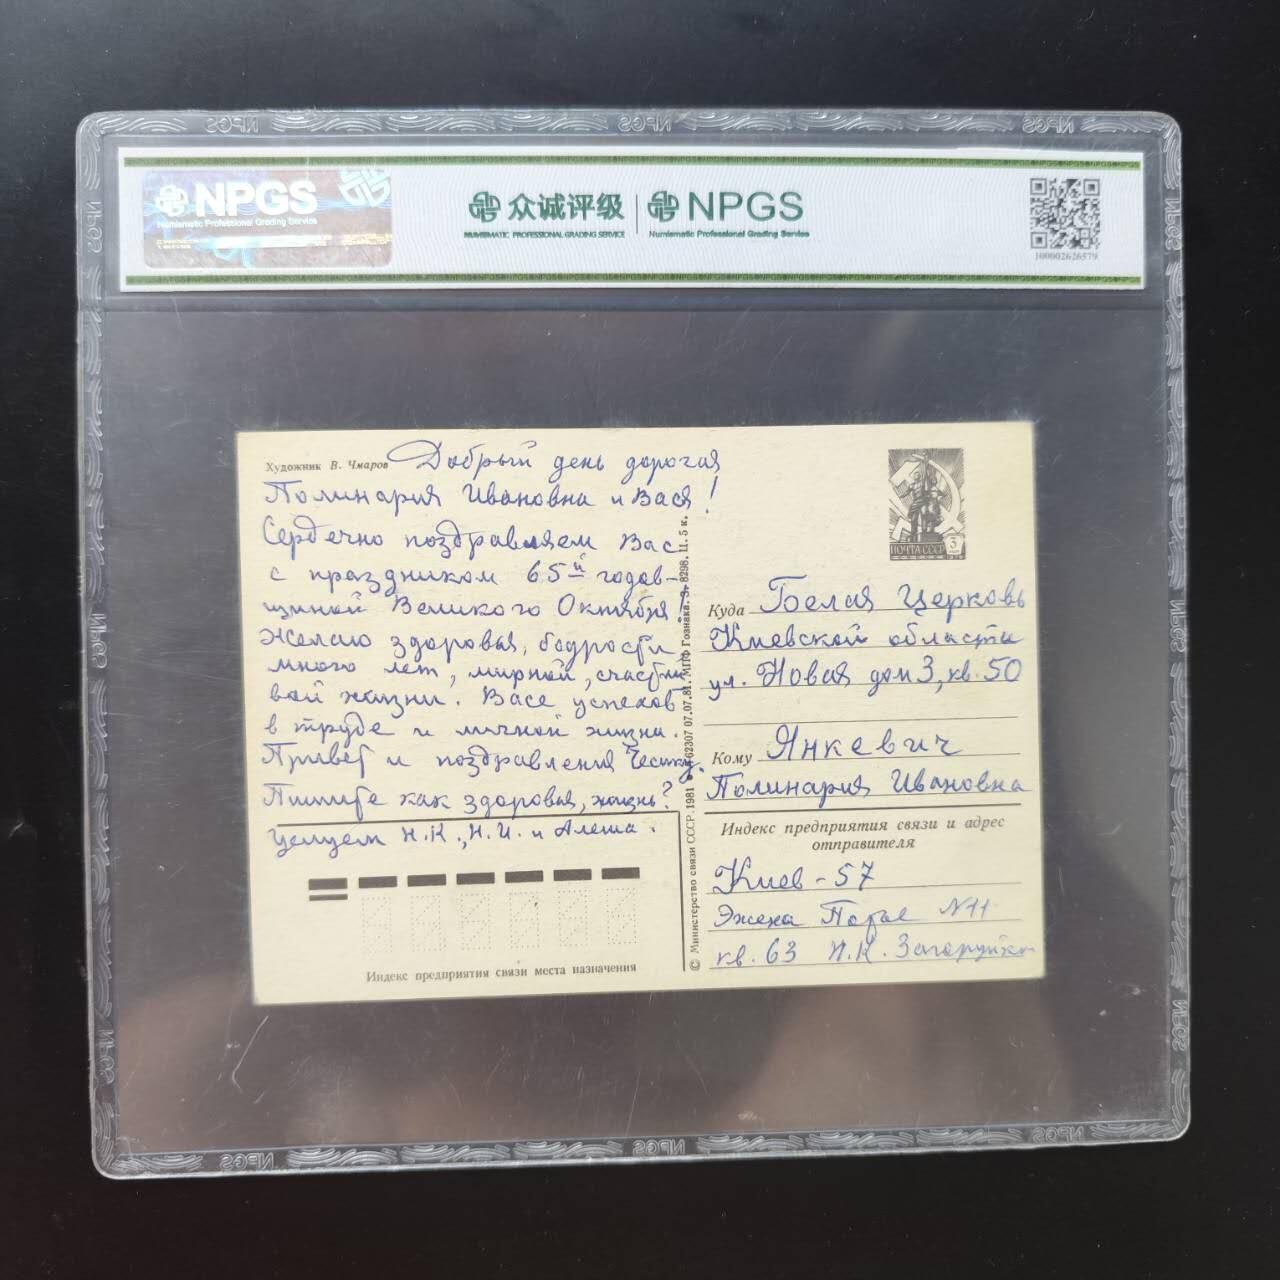 NPGS
Numismatic Professional Grading Service
众诚评级
NUMISMATIC PROFESSIONAL GRADING SERVICE
NPGS
Numismatic Professional Grading Service
100002626579
Художник В. Чмаров
Добрый день дорогая
Полинария Ивановна и Вася!
Сердечно поздравляем Вас
с праздником 65й годов-
щиной Великого Октября!
Желаю здоровья, бодрости
много лет, мирной, счастли
вой жизни. Васе успехов
в труде и личной жизни.
Привет и поздравления
Пишите как здоровья, жизнь?
Целуем Н.К., Н.И. и Алеша.
Индекс предприятия связи места назначения
© Министерство связи СССР. 1981 62307 07.07.81. МПФ Гознака. З. 8298. Ц. 5 к.
ПОЧТА СССР 3
Куда Белая Церковь
Киевской области
ул. Новая дом 3, кв. 50
Кому Янкевич
Полинария Ивановна
Индекс предприятия связи и адрес
отправителя
Киев-57
Эжена Потье №11
кв. 63 Н.К. Загоруйко